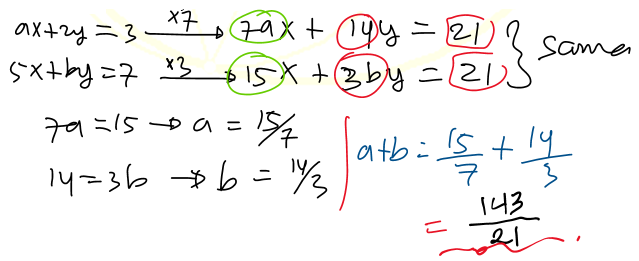 ax+2y=3 ×7→ 7ax + 14y = 21
5x+by=7 ×3→ 15x + 3by = 21 } same
7a=15 → a = 15/7
14=3b → b = 14/3
a+b = 15/7 + 14/3
= 143/21.